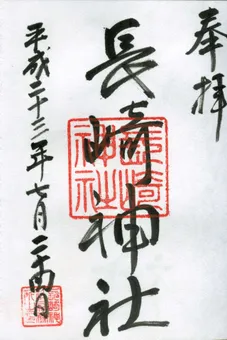 奉拝
長崎神社
平成二十三年七月二十四日
長崎神社